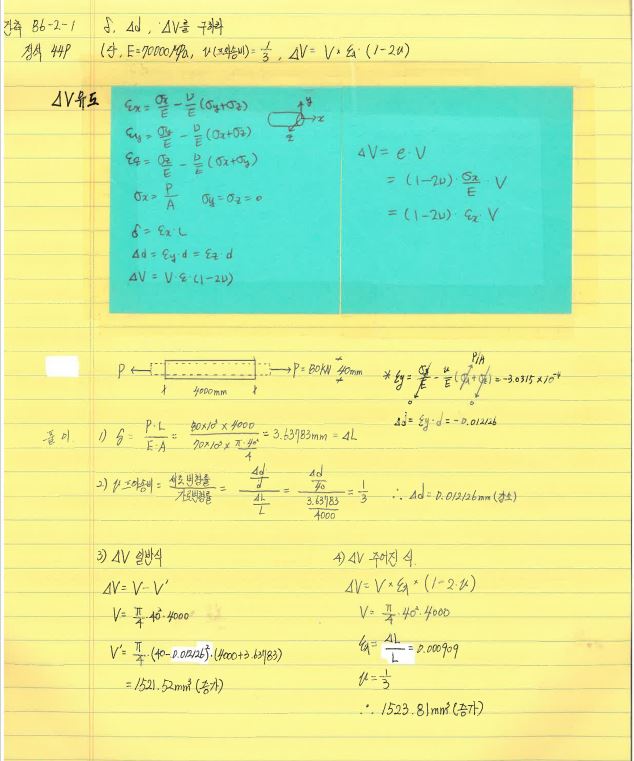 건축 86-2-1 δ, Δd, ΔV를 구하라
정석 44P (단, E=70000MPa, ν(프와송비)=1/3, ΔV= V×εx·(1-2ν)
ΔV유도
εx= σx/E - ν/E(σy+σz)
εy= σy/E - ν/E(σx+σz)
εz= σz/E - ν/E(σx+σy)
σx= P/A σy=σz=0
δ= εx·L
Δd= εy·d= εz·d
ΔV= V·ε·(1-2ν)
y
x
z
ΔV= e·V
= (1-2ν)·σx/E·V
= (1-2ν)·εx·V
P P=80KN 40mm
4000mm
* εy= σy/E - ν/E(σx+σz)=-3.0315×10⁻⁴
P/A
0 0
Δd= εy·d=-0.012126
풀이 1) δ= P·L/E·A = 80×10³×4000/70×10³×π·40²/4 =3.63783mm=ΔL
2) ν프와송비= 세로변형률/가로변형률 = Δd/d / ΔL/L = Δd/40 / 3.63783/4000 = 1/3 ∴ Δd=0.012126mm(감소)
3) ΔV 일반식
ΔV= V-V'
V= π/4·40²·4000
V'= π/4·(40-0.012126)²·(4000+3.63783)
=1521.52mm³(증가)
4) ΔV 주어진 식.
ΔV= V×εx×(1-2·ν)
V= π/4·40²·4000
εx= ΔL/L =0.000909
ν=1/3
∴ 1523.81mm³(증가)